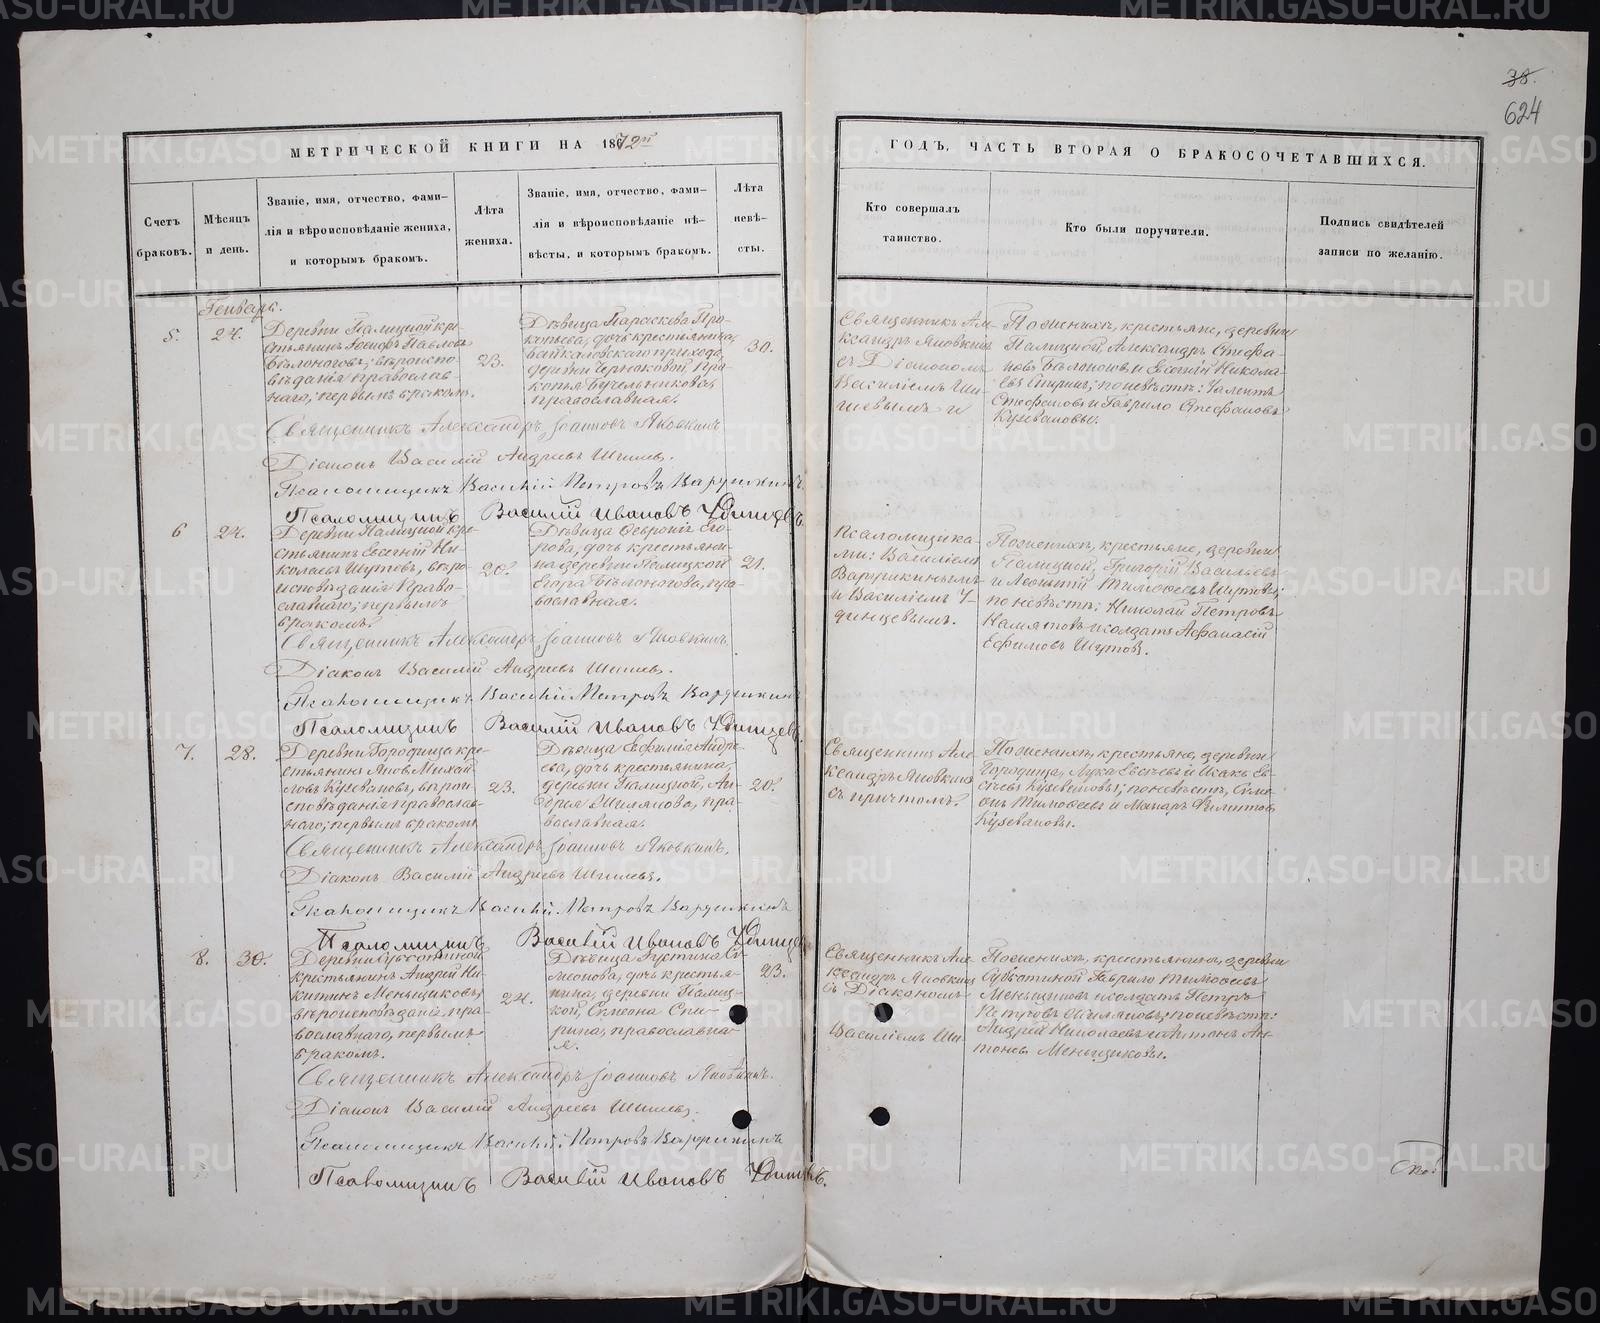 38.
624
МЕТРИЧЕСКОЙ КНИГИ НА 1872й
ГОДЪ, ЧАСТЬ ВТОРАЯ О БРАКОСОЧЕТАВШИХСЯ.
Счетъ
браковъ.
Мѣсяцъ
и день.
Званіе, имя, отчество, фами-
лія и вѣроисповѣданіе жениха,
и которымъ бракомъ.
Лѣта
жениха.
Званіе, имя, отчество, фами-
лія и вѣроисповѣданіе нѣ-
вѣсты, и которымъ бракомъ.
Лѣта
невѣ-
сты.
Кто совершалъ
таинство.
Кто были поручители.
Подпись свидѣтелей
записи по желанію.
Генварь.
5. 24.
Деревни Палицкой кре-
стьянинъ Іосифъ Павловъ
Бѣлоноговъ, вѣроиспо-
вѣданія православ-
наго, первымъ бракомъ.
23.
Дѣвица Параскева Про-
копьева, дочь крестьянина,
Байкаловскаго прихода,
деревни Про-
копья
православная.
30.
Священникъ Але-
ксандръ Яновкинъ
съ Діакономъ
Василіемъ Ши-
шевымъ и
По женихѣ, крестьяне, деревни
Палицкой, Александръ Стефа-
новъ Бѣлоноговъ и Евгеній Никола-
евъ по невѣстѣ:
Стефановъ и Гаврило Стефановъ
Кузевановы.
Священникъ Александръ Іоанновъ Яновкинъ
Діаконъ Василій Андреевъ Шишевъ.
Псаломщикъ Василій Петровъ Варушкинъ
Псаломщикъ Василій Ивановъ Удинцевъ
6 24.
Деревни Палицкой кре-
стьянинъ Евгеній Ни-
колаевъ Шутовъ, вѣро-
исповѣданія Право-
славнаго, первымъ
бракомъ.
20.
Дѣвица Февронія Его-
рова, дочь крестьяни-
на деревни Палицкой
Егора Бѣлоногова, пра-
вославная.
21.
Псаломщика-
ми: Василіемъ
Варушкинымъ
и Василіемъ У-
динцевымъ.
По женихѣ, крестьяне, деревни
Палицкой, Григорій Васильевъ
и Леонтій Тимофеевъ Шутовы;
по невѣстѣ: Николай Петровъ
и солдатъ Афанасій
Ефимовъ Шутовъ.
Священникъ Александръ Іоанновъ Яновкинъ.
Діаконъ Василій Андреевъ Шишевъ.
Псаломщикъ Василій Петровъ Варушкинъ
Псаломщикъ Василій Ивановъ Удинцевъ.
7. 28.
Деревни Городища кре-
стьянинъ Яковъ Михай-
ловъ Кузевановъ, вѣрои-
сповѣданія православ-
наго, первымъ бракомъ
23.
Дѣвица Евфимія Андре-
ева, дочь крестьянина,
деревни Палицкой, Ан-
дрея Шилякова, пра-
вославная.
20.
Священникъ Але-
ксандръ Яновкинъ
съ причтомъ.
По женихѣ, крестьяне, деревни
Городища, Лука Евсѣевъ и Исакъ Ев-
сѣевъ Кузевановы; по невѣстѣ, Симе-
онъ Тимофеевъ и Макаръ Филитовъ
Кузевановы.
Священникъ Александръ Іоанновъ Яновкинъ.
Діаконъ Василій Андреевъ Шишевъ.
Псаломщикъ Василій Петровъ Варушкинъ
Псаломщикъ Василій Ивановъ Удинцевъ
8. 30.
Деревни Субботиной
крестьянинъ Андрей Ни-
китинъ Меньщиковъ,
вѣроисповѣданія, пра-
вославнаго, первымъ
бракомъ.
24.
Дѣвица Іустина Си-
меонова, дочь крестья-
нина, деревни Палиц-
кой, Симеона Спи-
рина, православна-
я.
23.
Священникъ Але-
ксандръ Яновкинъ
съ Діакономъ
Василіемъ Ши-
По женихѣ, крестьянинъ, деревни
Субботиной Гаврило Тимофеевъ
Меньщиковъ и солдатъ Петръ
Петровъ Шиляковъ; по невѣстѣ:
Андрей Николаевъ и Антонъ Ан-
тоновъ Меньщиковы.
Священникъ Александръ Іоанновъ Яновкинъ.
Діаконъ Василій Андреевъ Шишевъ.
Псаломщикъ Василій Петровъ Варушкинъ
Псаломщикъ Василій Ивановъ Удинцевъ.
METRIKI.GASO-URAL.RU